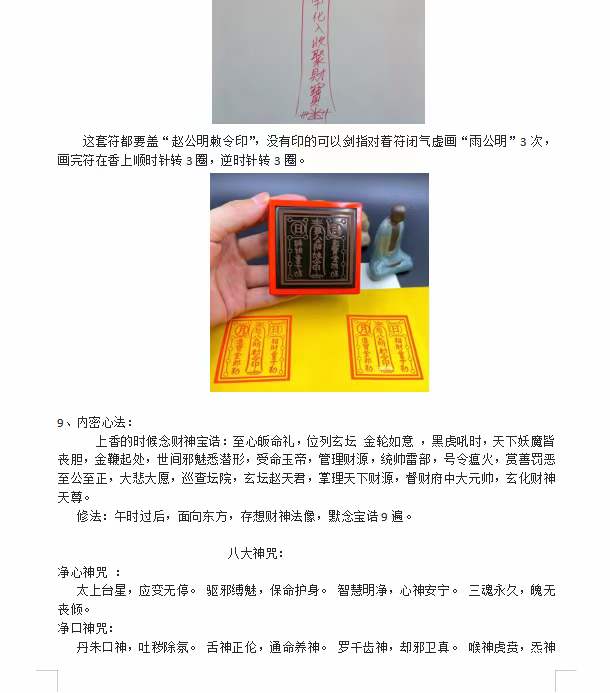 字化入收聚财寳
这套符都要盖“赵公明敕令印”，没有印的可以剑指对着符闭气虚画“雨公明”3 次，
画完符在香上顺时针转 3 圈，逆时针转 3 圈。
9、内密心法：
上香的时候念财神宝诰：至心皈命礼，位列玄坛 金轮如意 ，黑虎吼时，天下妖魔皆
丧胆，金鞭起处，世间邪魅悉潜形，受命玉帝，管理财源，统帅雷部，号令瘟火，赏善罚恶
至公至正，大悲大愿，巡查坛院，玄坛赵天君，掌理天下财源，督财府中大元帅，玄化财神
天尊。
修法：午时过后，面向东方，存想财神法像，默念宝诰 9 遍。
八大神咒：
净心神咒 ：
太上台星，应变无停。 驱邪缚魅，保命护身。 智慧明净，心神安宁。 三魂永久，魄无
丧倾。
净口神咒：
丹朱口神，吐秽除氛。 舌神正伦，通命养神。 罗千齿神，却邪卫真。 喉神虎贲，炁神